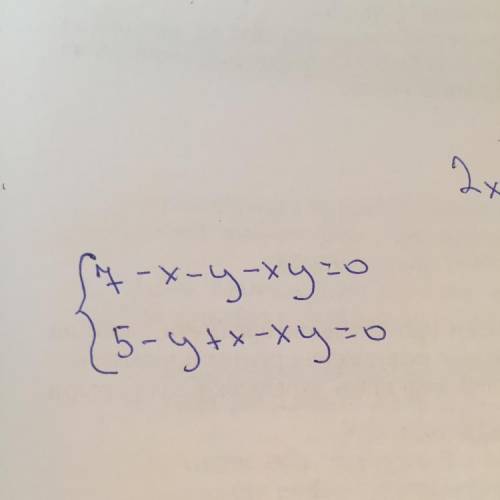 2x
7-x-y-xy=0
5-y+x-xy=0